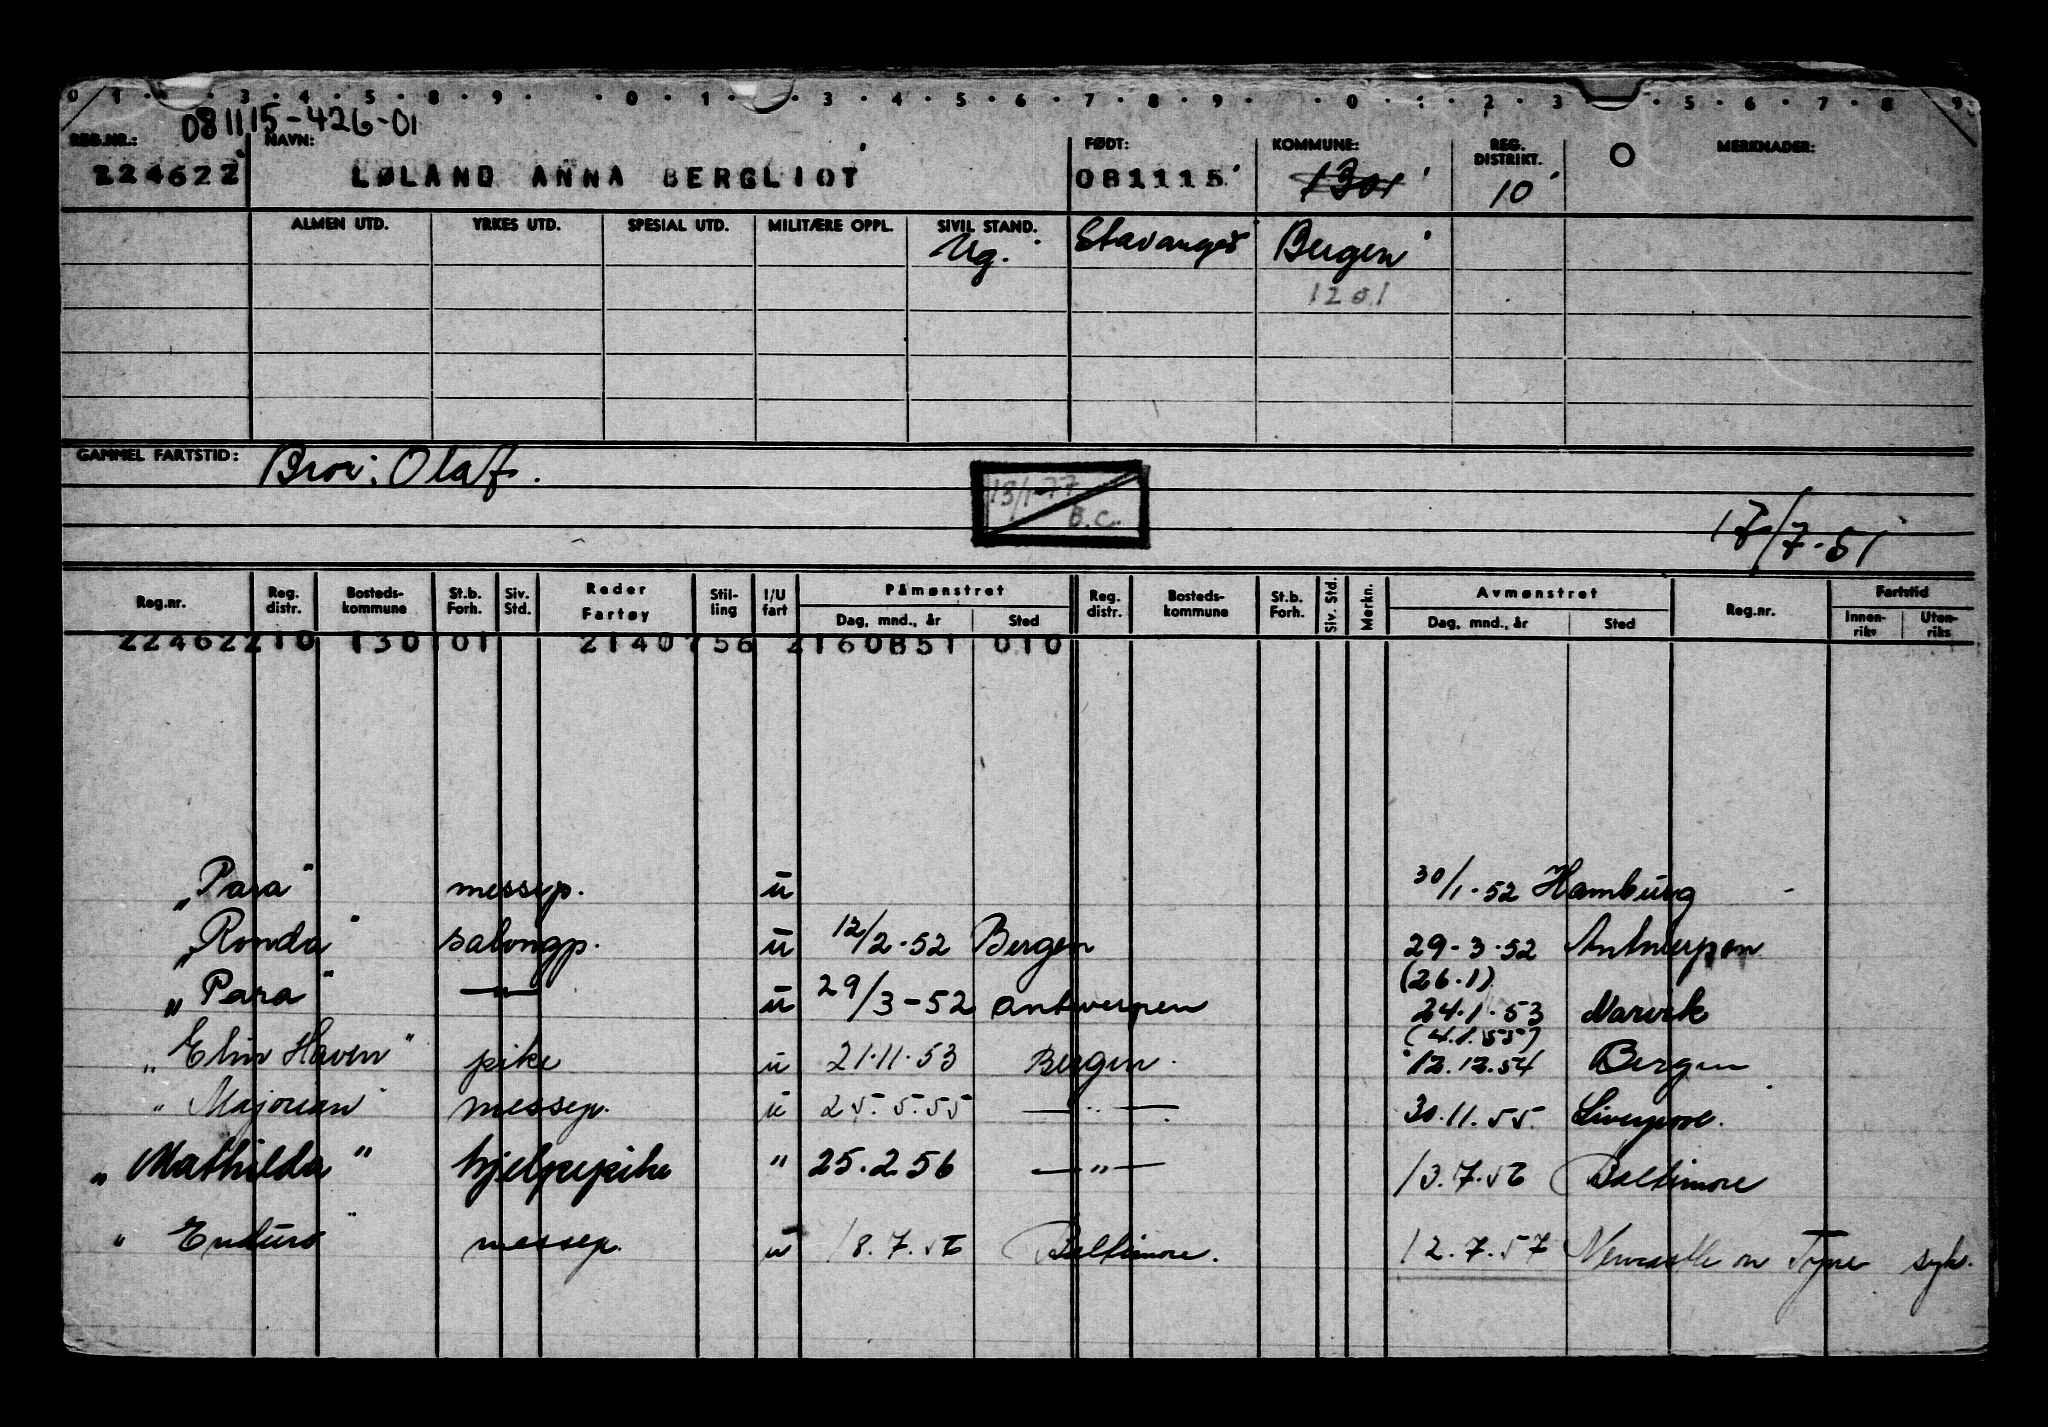 0 1 · 3 · 4 · 5 · 8 · 9 · · 0 · 1 · · 3 · 4 · 5 · 6 · 7 · 8 · 9 · · 0 · 1 · 2 · 3 · 5 · 6 · 7 · 8 9
081115-426-01
REG.NR.: NAVN: FØDT: KOMMUNE: REG. DISTRIKT. MERKNADER:
224622 LØLAND ANNA BERGLIOT 081115 1301 10
ALMEN UTD. YRKES UTD. SPESIAL UTD. MILITÆRE OPPL. SIVIL STAND.
Ug. Stavanger Bergen
1201
GAMMEL FARTSTID: Bror: Olaf.
13/1-77
B.C.
17/7-51
Reg.nr. Reg. distr. Bosteds-kommune St.b. Forh. Siv. Std. Reder Fartøy Stil-ling I/U fart Påmønstret Dag, mnd., år Sted Reg. distr. Bosteds-kommune St.b. Forh. Siv. Std. Merkn. Avmønstret Dag, mnd., år Sted Reg.nr. Fartstid Innen-riks Uten-riks
22462210 130 101 2140756 2160851 010
"Para" messep. u 30/1-52 Hamburg
"Ronda" salongp. u 12/2-52 Bergen 29-3-52 Antwerpen
(26.1)
"Para" —"— u 29/3-52 Antwerpen 24.1.53 Narvik
(4.1.55)
"Elin Haven" pike u 21.11.53 Bergen 12.12.54 Bergen
"Majorian" messep. u 25.5.55 —"— 30.11.55 Liverpool.
"Mathilda" hjelpepike " 25.2 56 —"— 13.7.56 Baltimore
"Enduro" messep. u 18.7.56 Baltimore. 12.7.57 Newcastle on Tyne syk.